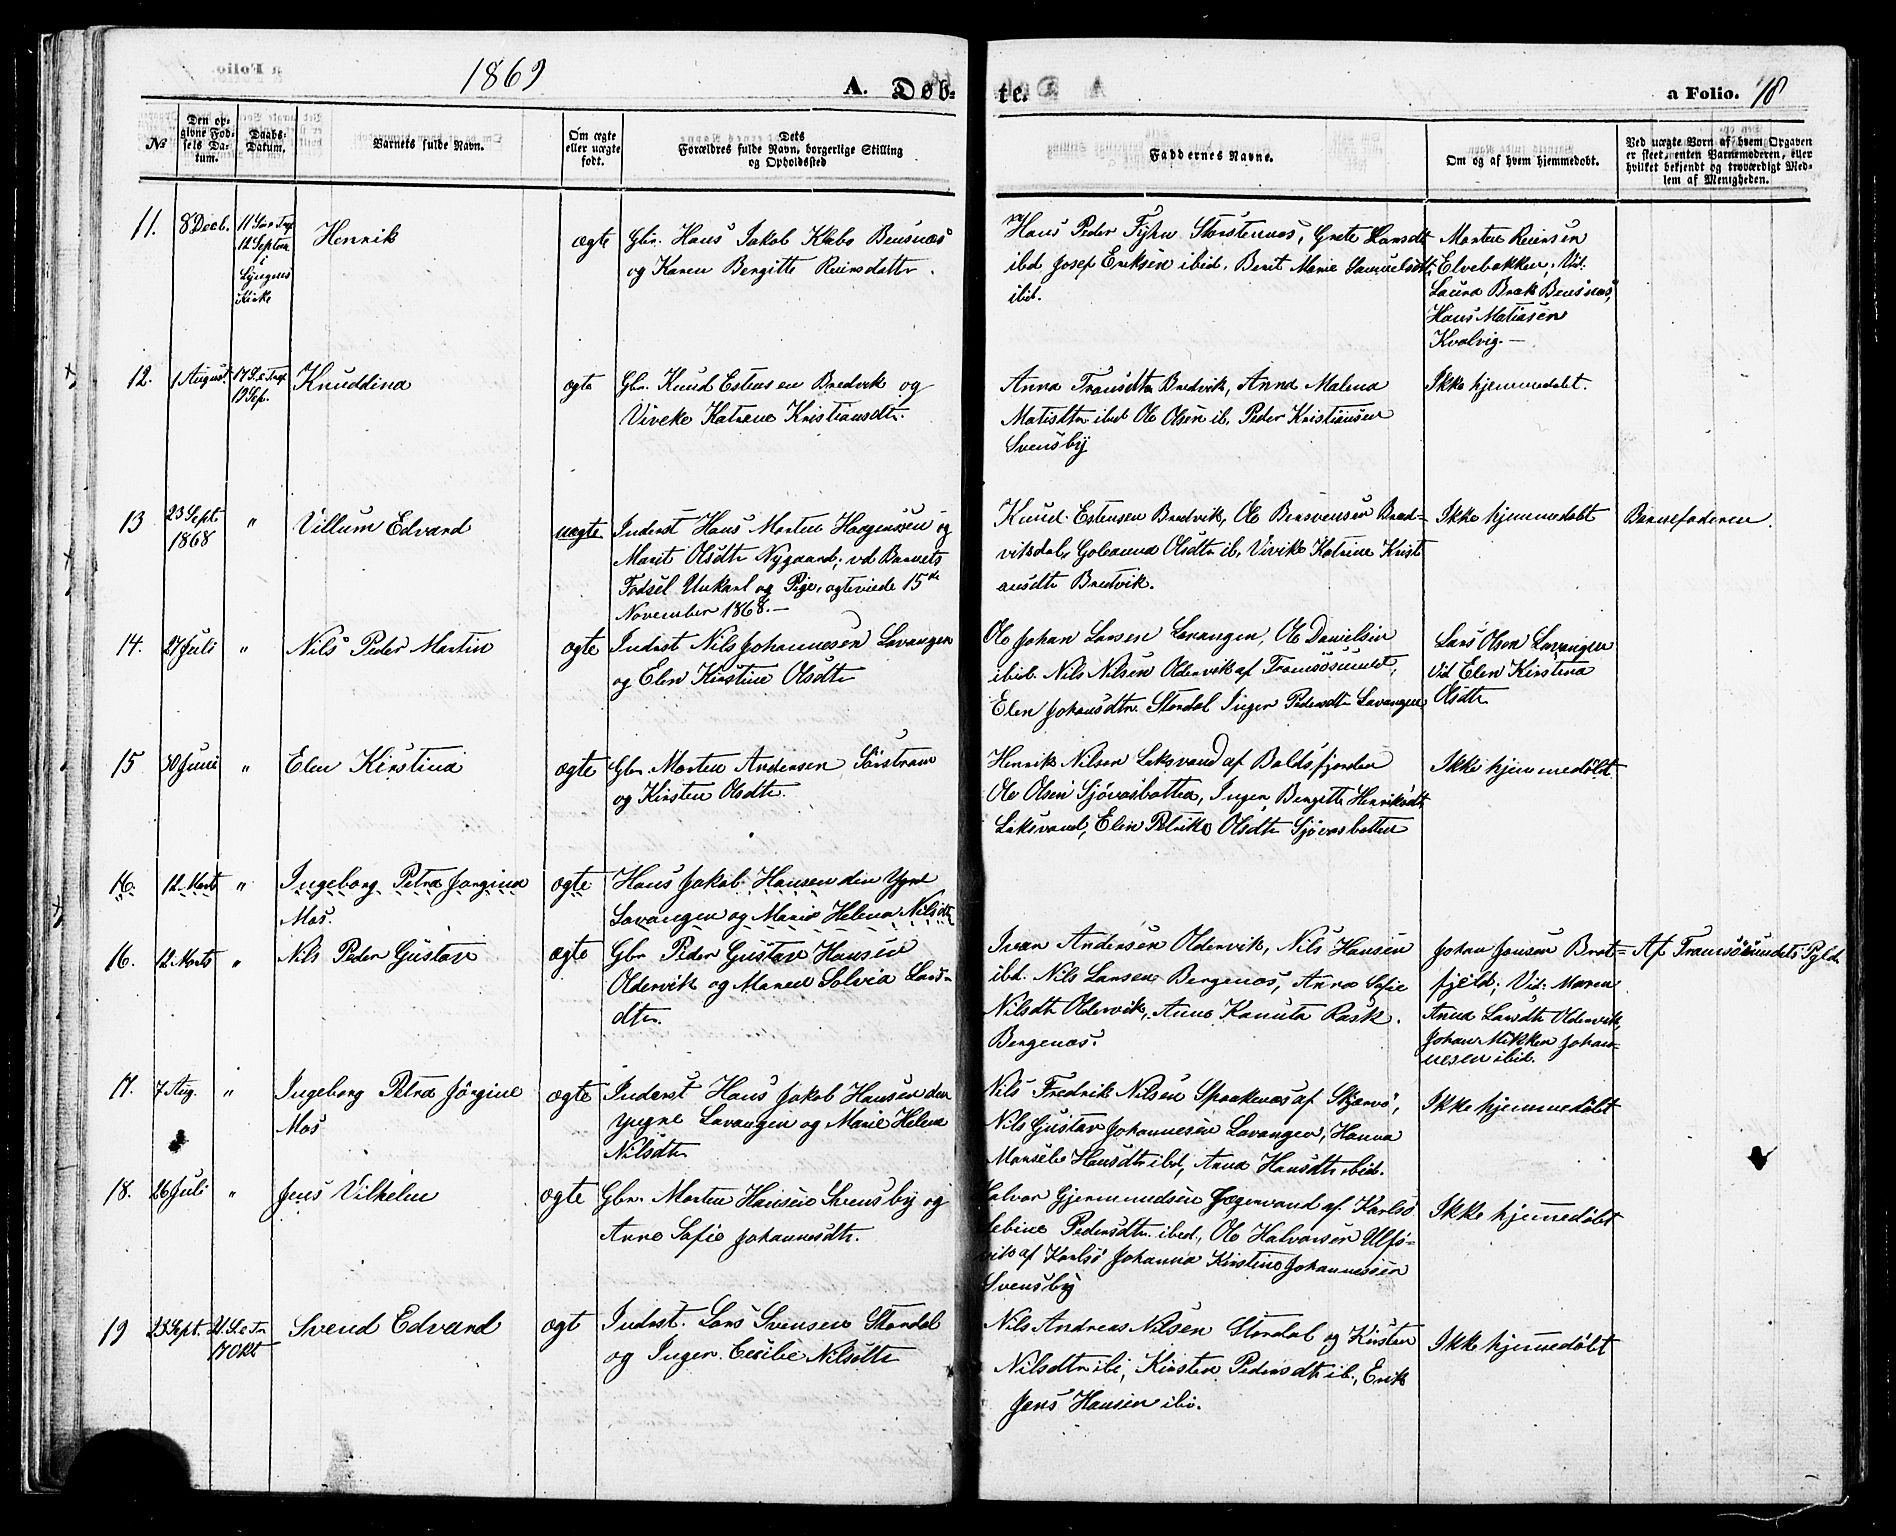 1869
A. Døb-
te.
a Folio. 18
No
Den op-
givne Fød-
sels Da-
tum.
Daabs-
Datum.
Barnets fulde Navn.
Om ægte
eller uægte
født.
Dets
Forældres fulde Navn, borgerlige Stilling
og Opholdssted
Faddernes Navne.
Om og af hvem hjemmedøbt.
Ved uægte Børn af hvem Opgaven
er skeet, enten Barnemoderen, eller
hvilket bekjendt og troværdigt Med-
lem af Menigheden.
11.
8 Decb.
12 Septem
i
Lyngens
Kirke
Henrik
ægte
Gbr. Hans Jakob Bensnæs
og Karen Bergitte Reiersdattr.
Hans Peder Storstennæs, Grete Hansdt
ibd Josef Eriksen ibid. Berit Marie Samuelsdtr
ibd.
Morten Reiersen
Elvebakken; Vid:
Laura Brak Bensnæs,
Hans Matiasen
Kvalvig. —
12.
1 August
19 Sep.
Knuddina
ægte
Gbr. Knud Estensen Bredvik og
Viveke Katrine Kristiansdtr.
Anna Bredvik, Anna Malena
Matisdtr ibd Ole Olsen ib. Peder Kristiansen
Svensby
Ikke hjemmedøbt.
13
23 Sept
1868
"
Villum Edvard
uægte
Inderst Hans Morten Haagensen og
Marit Olsdtr Nygaard; vd Barnets
Fødsel Unkarl og Pige, ægteviede 15de
November 1868. —
Knud Estensen Bredvik, Ole Bred-
viksdal, Olsdtr ib. Vivike Katrine Kristi
ansdtr Bredvik.
Ikke hjemmedøbt
Barnefaderen.
14.
27 Juli
"
Nils Peder Martin
ægte
Inderst Nils Johannesen Lavangen
og Elen Kirstine Olsdtr
Ole Johan Larsen Lavangen, Ole Danielsen
ibid. Nils Nilsen Oldervik af Tromsøsundet,
Elen Johansdtr. Stordal Inger Pedersdtr Lavangen
Lars Olsen Lavangen
Vid Elen Kirstina
Olsdtr
15
30 Juni
"
Elen Kirstina
ægte
Gbr Morten Andersen Sørstrøm
og Kirsten Olsdtr.
Henrik Nilsen Laksvand af Balsfjorden
Ole Olsen Sjøvasbotten, Inger Bergitte Henriksdtr
Laksvand, Elen Petrike Olsdtr Sjøvasbotten
Ikke hjemmedøbt
16.
12 Marts
"
Ingeborg Petra Jørgina
Mos.
ægte
Hans Jakob Hansen den Yngre
Lavangen og Marie Helena Nilsdtr
16.
12 Marts
"
Nils Peder Gustav
ægte
Gbr Peder Gustav Hansen
Oldervik og Maren Solvia Lars-
dtr.
Ivar Andersen Oldervik, Nils Hansen
ibd. Nils Larsen Bergenæs, Anne Sofie
Nilsdtr Oldervik, Anne Kanuta Rask
Bergenæs.
Johan Jonsen Brat-
fjeld; Vid: Maren
Anna Larsdtr Oldervik,
Johan Mikken Johan-
nesen ibid.
Af Tromsøsundets Pgld.
17.
7 Aug.
"
Ingeborg Petra Jørgine
Mos
ægte
Inderst Hans Jakob Hansen den
yngre Lavangen og Marie Helene
Nilsdtr
Nils Fredrik Nilsen Spaakenæs af Skjervø,
Nils Gustav Johannesen Lavangen, Hanna
Hansdtr ibd, Anna Hansdtr ibid.
Ikke hjemmedøbt
18.
26 Juli
"
Jens Vilhelm
ægte
Gbr. Morten Hansen Svensby og
Anne Sofie Johannesdtr.
Halvor Gjermundsen Jægervand af Karlsø
Pedersdtr. ibed, Ole Halvorsen Ulfs-
vik af Karlsø Johanna Kirstine Johannessen
Svensby
Ikke hjemmedøbt
19
23 Sept.
21. S. e Tr.
17 Okt
Svend Edvard
ægt
Inderst. Lars Svensen Stordal
og Inger Cecilie Nilsdtr
Nils Andreas Nilsen Stordal og Kirsten
Nilsdtr ibi, Kirsten Pedersdtr ib., Erik
Jens Hansen ibi.
Ikke hjemmedøbt